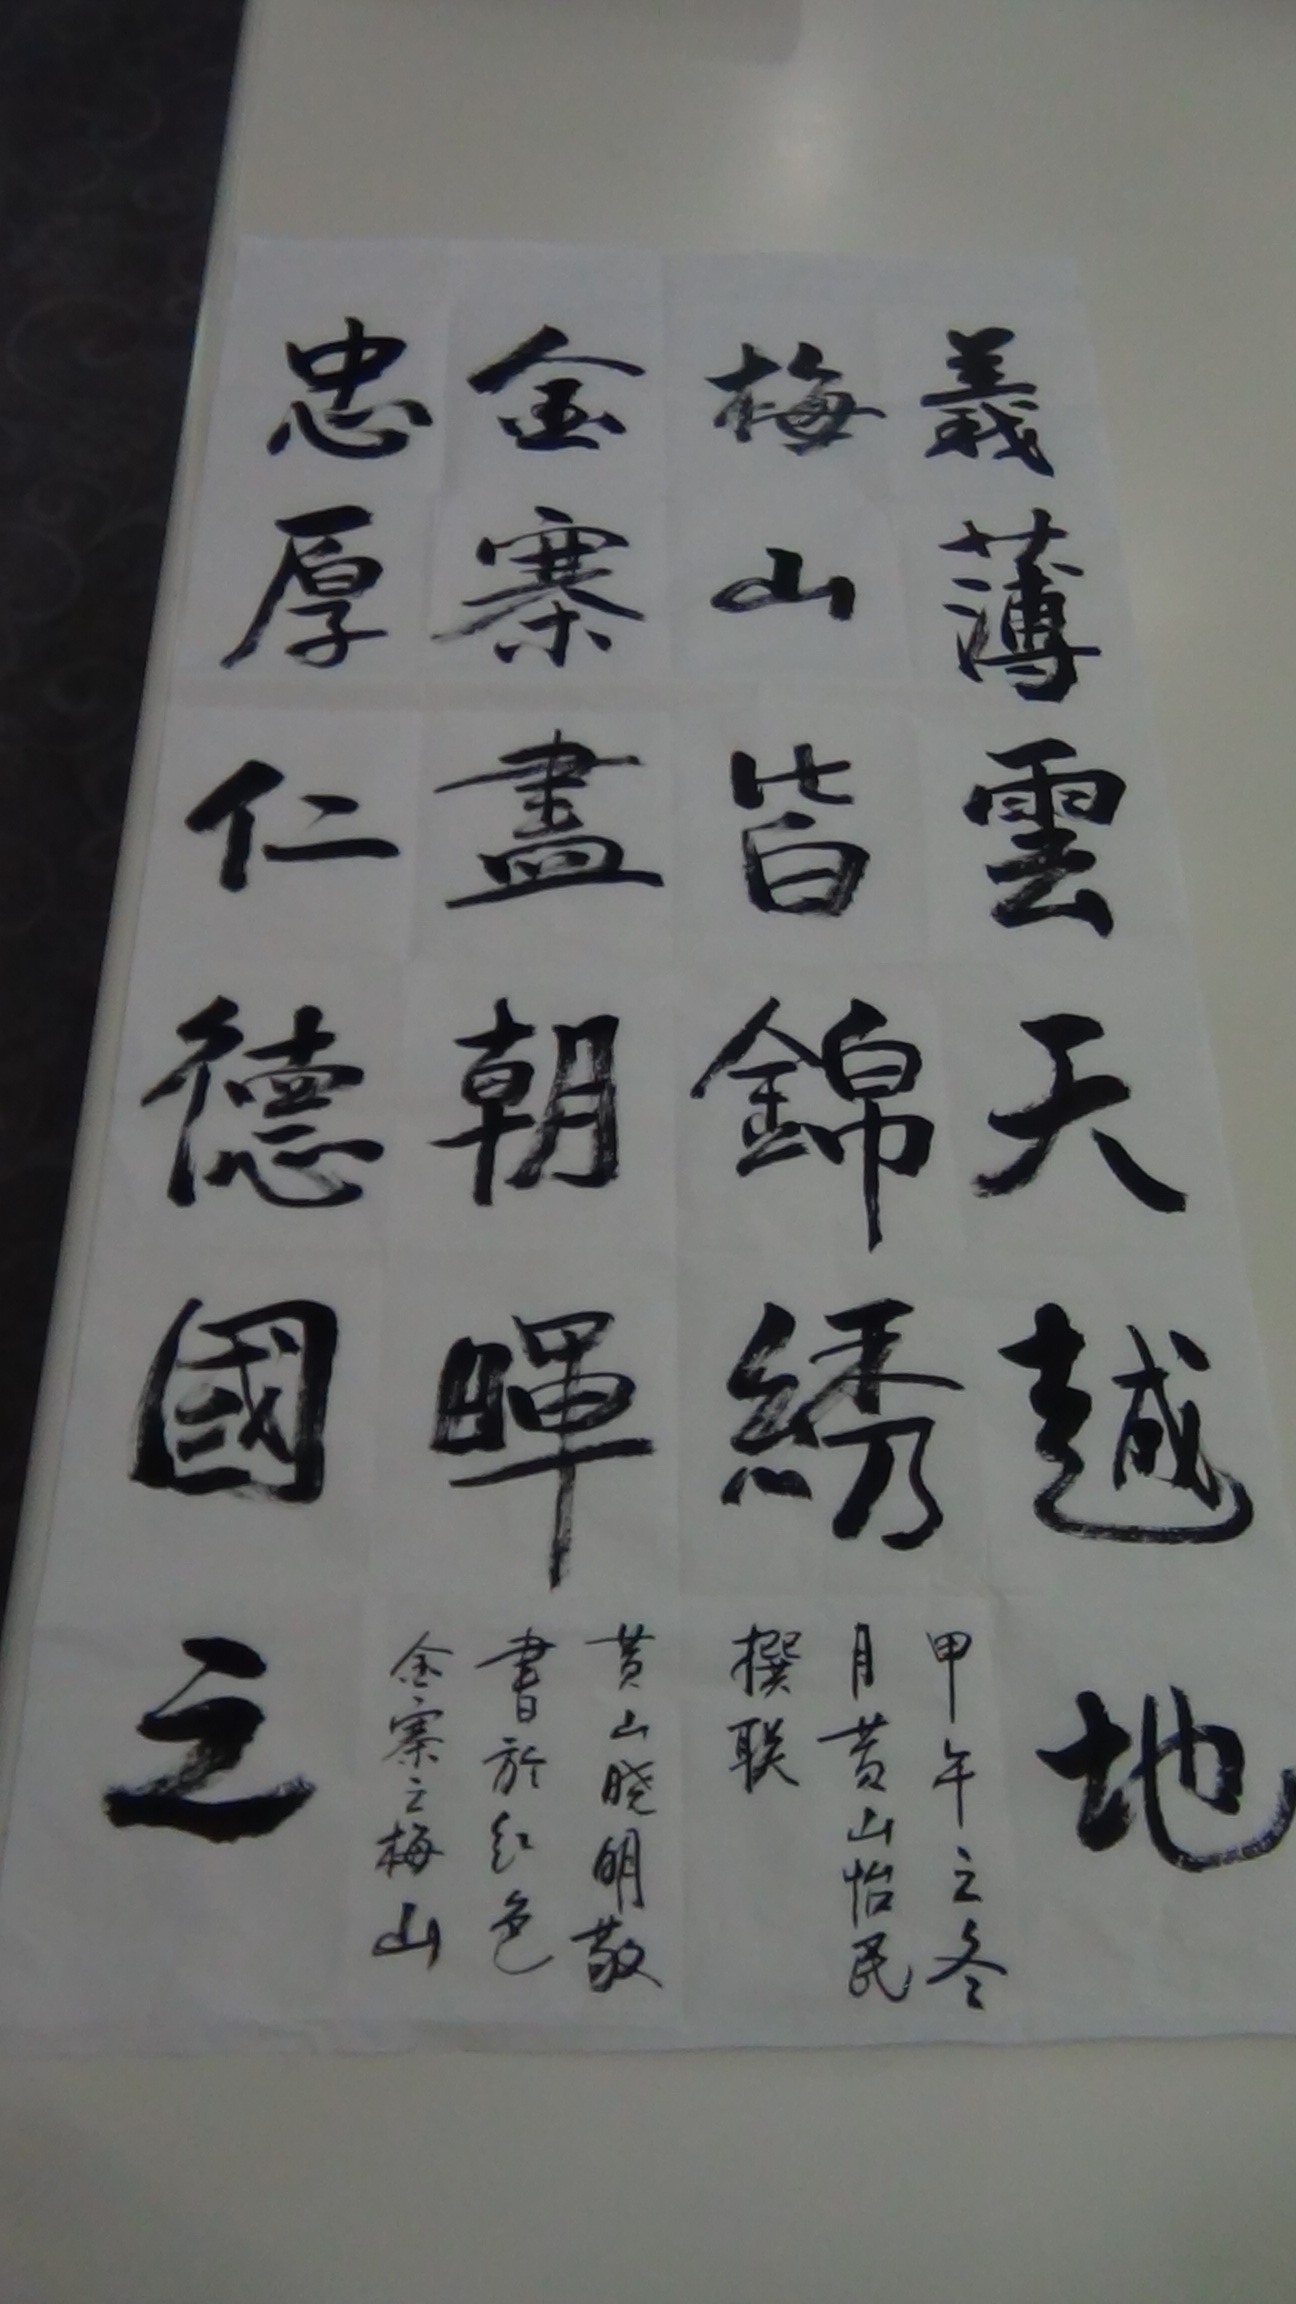 義薄雲天越地
梅山皆錦綉
甲午之冬
月黄山怡民
撰联
金寨盡朝暉
黄山晓明敬
書於红色
金寨之梅山
忠厚仁德國之